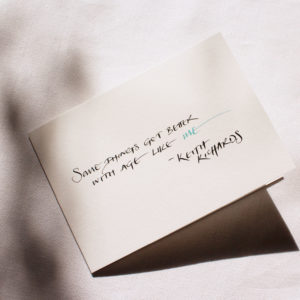 Some things get better
with age like me
- Keith
Richards